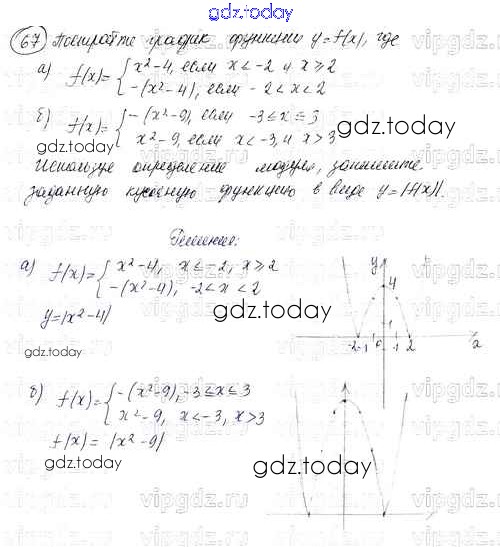 gdz.today
67 Постройте график функции y=f(x), где
а) f(x)={x²-4, если x<-2 и x≥2
-(x²-4), если -2<x<2
б) f(x)={-(x²-9), если -3≤x≤3
x²-9, если x<-3, и x>3
gdz.today
Используя определение модуля, запишите
заданную кусочную функцию в виде y=|f(x)|.
gdz.today
Решение:
а) f(x)={x²-4, x≤-2, x≥2
-(x²-4), -2<x<2
y=|x²-4|
gdz.today
gdz.today
y
4
1
-2 -1 0 1 2
x
б) f(x)={-(x²-9), -3≤x≤3
x²-9, x<-3, x>3
f(x)=|x²-9|
gdz.today
gdz.today
vipgdz.ru